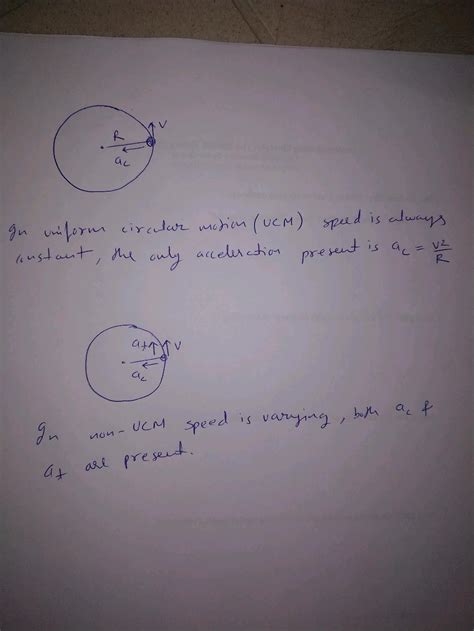 V
R
ac
In uniform circular motion (UCM) speed is always
constant, the only acceleration present is ac = V2/R
at V
ac
In non-UCM speed is varying, both ac &
at are present.